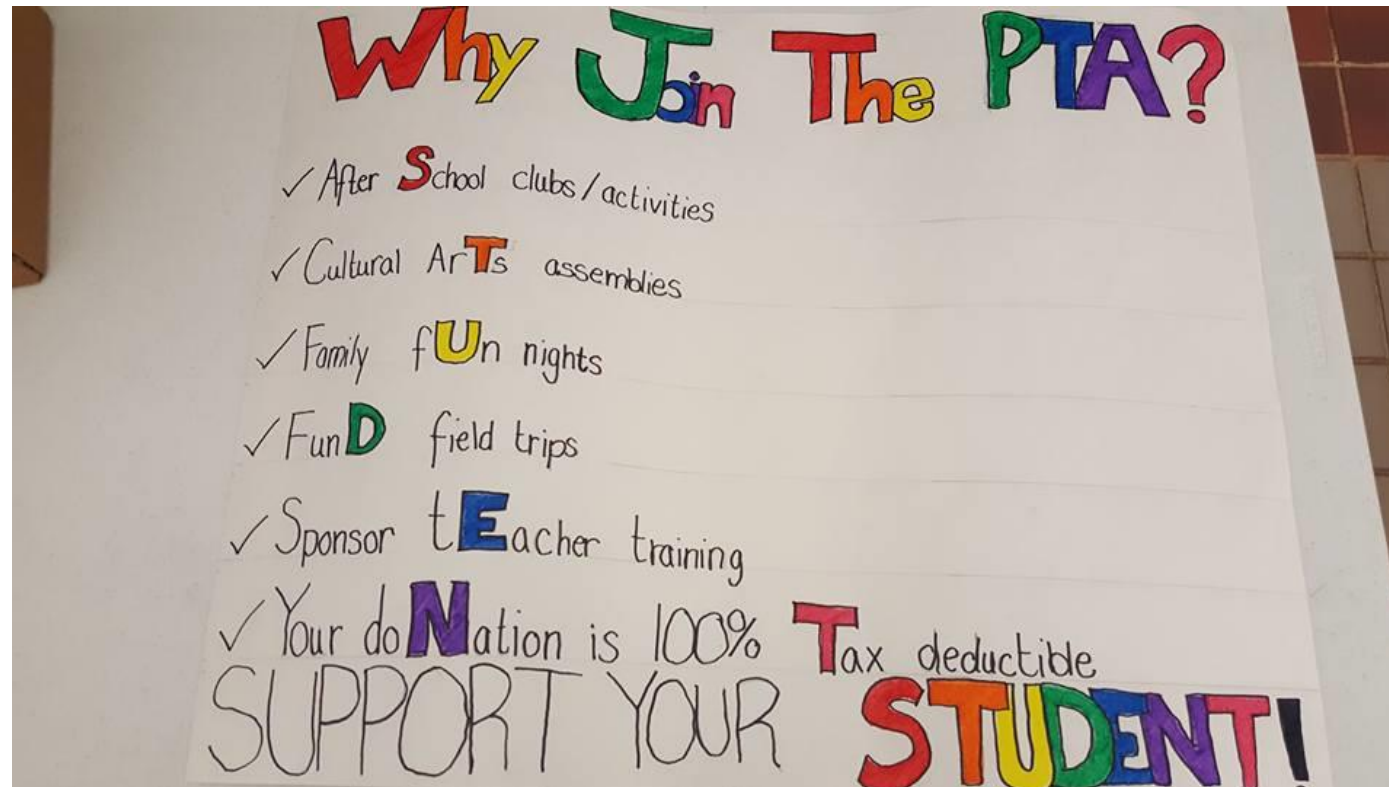 Why Join The PTA?
✓ After School clubs/activities
✓ Cultural ArTs assemblies
✓ Family fUn nights
✓ FunD field trips
✓ Sponsor tEacher training
✓ Your doNation is 100% Tax deductible
SUPPORT YOUR STUDENT!